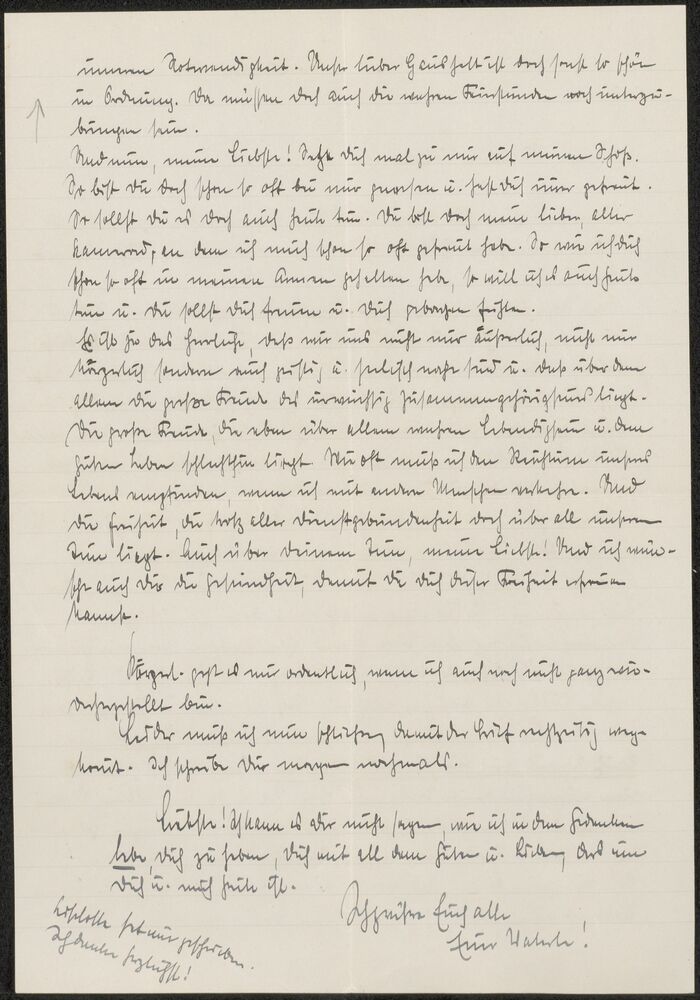 inneren Notwendigkeit. Unser lieber Haushalt ist doch sonst so schön
in Ordnung. Da müssen doch auch die wahren Feierstunden noch unterzu-
bringen sein.
Und nun, meine Liebste! Setze Dich mal zu mir auf meinen Schoß.
So bist Du doch schon so oft bei mir gewesen u. hast Dich immer gefreut.
So sollst Du es doch auch heute tun. Du bist doch mein lieber, alter
Kamerad, an dem ich mich schon so oft gefreut habe. So wie ich Dich
schon so oft in meinen Armen gehalten habe, so will ich es auch heute
tun u. Du sollst Dich freuen u. Dich geborgen fühlen.
Es ist ja das Herrliche, daß wir uns nicht nur äußerlich, nicht nur
körperlich sondern auch geistig u. seelisch nahe sind u. daß über dem
allem die große Freude des Zusammengehörigseins liegt.
Die große Freude, die eben über allem wahren Lebendigsein u. dem
guten Leben schlechthin liegt. Wie oft muß ich den Reichtum unseres
Lebens empfinden, wenn ich mit andern Menschen verkehre. Und
die Freiheit, die trotz aller Dienstgebundenheit doch über all unserem
Tun liegt. Auch über Deinem Tun, meine Liebste! Und ich wün-
sche auch Dir die Gesundheit, damit Du Dich dieser Freiheit erfreuen
kannst.
Körperl. geht es mir ordentlich, wenn ich auch noch nicht ganz wie-
derhergestellt bin.
Leider muß ich nun schließen, damit der Brief rechtzeitig weg-
kommt. Ich schreibe Dir morgen nochmals.
Liebste! Ich kann es Dir nicht sagen, wie ich in dem Gedanken
lebe, Dich zu haben, Dich mit all dem Guten u. Lieben, das um
Dich u. mich heute ist.
Ich grüße Euch alle
Euer Vaterle!
Liselotte hat mir geschrieben.
Ich danke herzlichst!